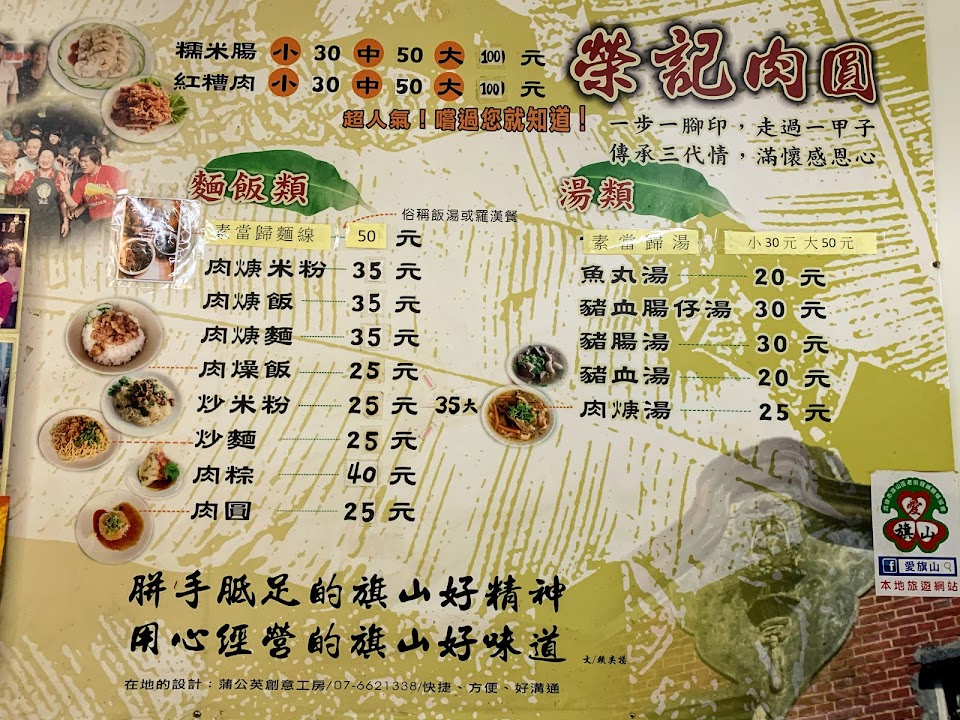 糯米腸 小 30 中 50 大 100 元
紅糟肉 小 30 中 50 大 100 元
超人氣！嚐過您就知道！
榮記肉圓
一步一腳印，走過一甲子
傳承三代情，滿懷感恩心
麵飯類
俗稱飯湯或羅漢餐
素當歸麵線 50 元
肉焿米粉 35 元
肉焿飯 35 元
肉焿麵 35 元
肉燥飯 25 元
炒米粉 25 元 35大
炒麵 25 元
肉粽 40 元
肉圓 25 元
湯類
素當歸湯 小30元 大50元
魚丸湯 20 元
豬血腸仔湯 30 元
豬腸湯 30 元
豬血湯 20 元
肉焿湯 25 元
愛
旗山
愛旗山
本地旅遊網站
胼手胝足的旗山好精神
用心經營的旗山好味道
在地的設計：蒲公英創意工房/07-6621338/快捷、方便、好溝通